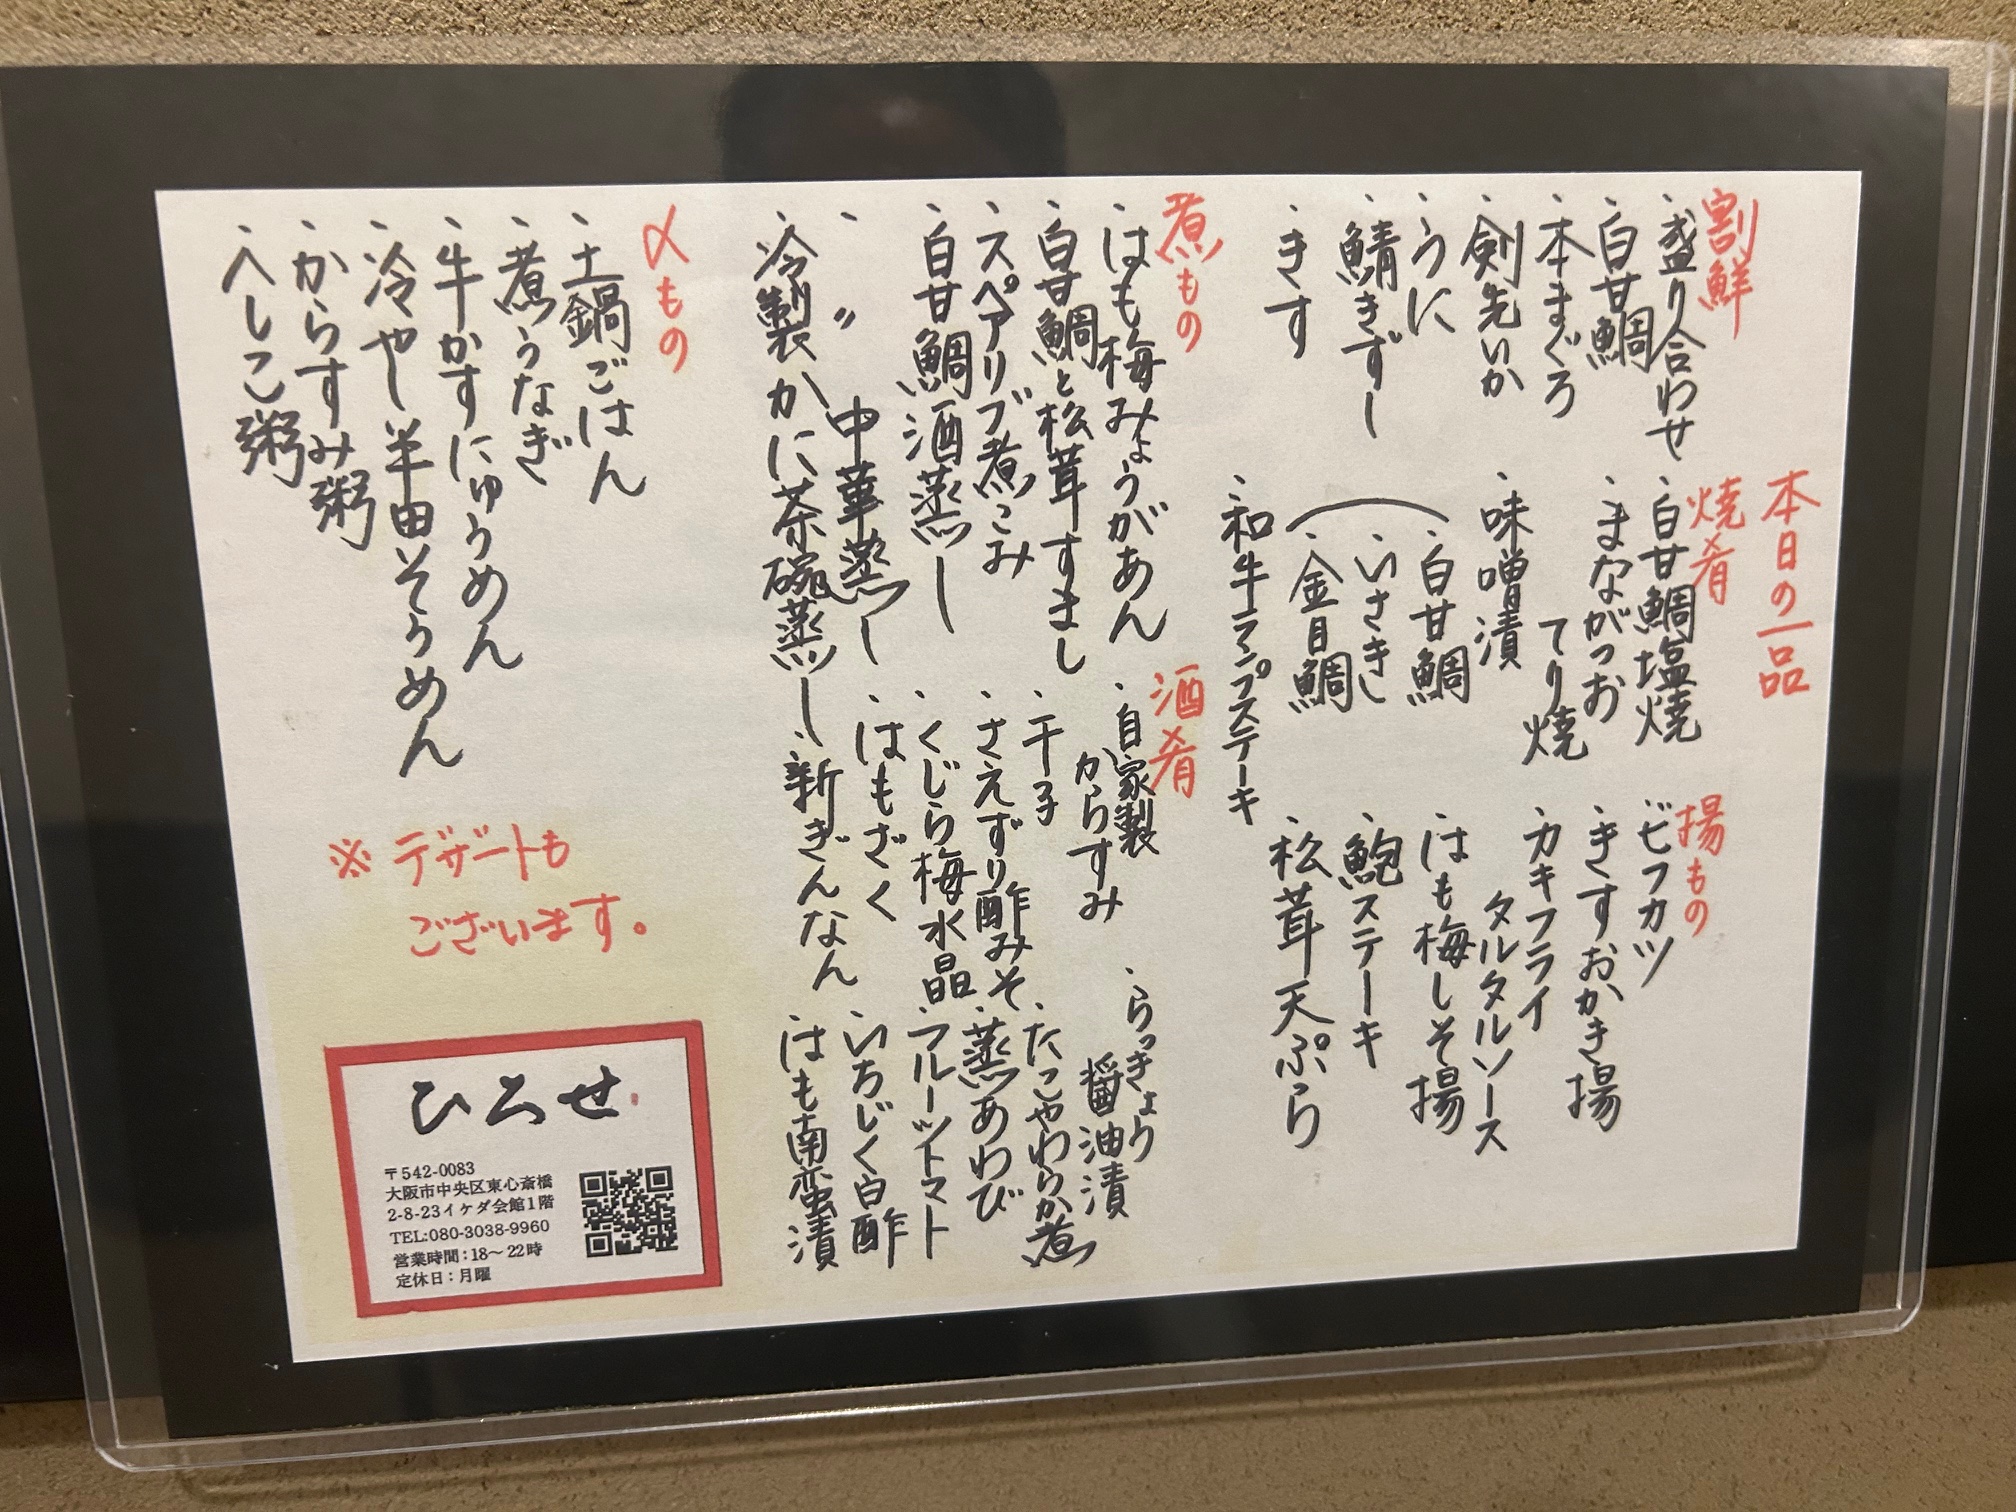 本日の一品
割鮮
、盛り合わせ
、白甘鯛
、本まぐろ
、剣先いか
、うに
、鯖きずし
、きす
焼肴
、白甘鯛塩焼
、まながつお
てり焼
、味噌漬
、白甘鯛
、いさき
、金目鯛
、和牛ランプステーキ
揚もの
、ビフカツ
、きすおかき揚
、カキフライ
タルタルソース
、はも梅しそ揚
、鮑ステーキ
、松茸天ぷら
煮もの
、はも梅みょうがあん
、白甘鯛と松茸すまし
、スペアリブ煮こみ
、白甘鯛酒蒸し
、〃 中華蒸し
、冷製かに茶碗蒸し
酒肴
、自家製
からすみ
、干子
、さえずり酢みそ
、くじら梅水晶
、はもざく
、新ぎんなん
、らっきょう
醤油漬
、たこやわらか煮
、蒸あわび
、フルーツトマト
、いちじく白酢
、はも南蛮漬
〆もの
、土鍋ごはん
、煮うなぎ
、牛かすにゅうめん
、冷やし半田そうめん
、からすみ粥
、へしこ粥
※デザートも
ございます。
ひろせ
〒542-0083
大阪市中央区東心斎橋
2-8-23イケダ会館1階
TEL:080-3038-9960
営業時間：18〜22時
定休日：月曜